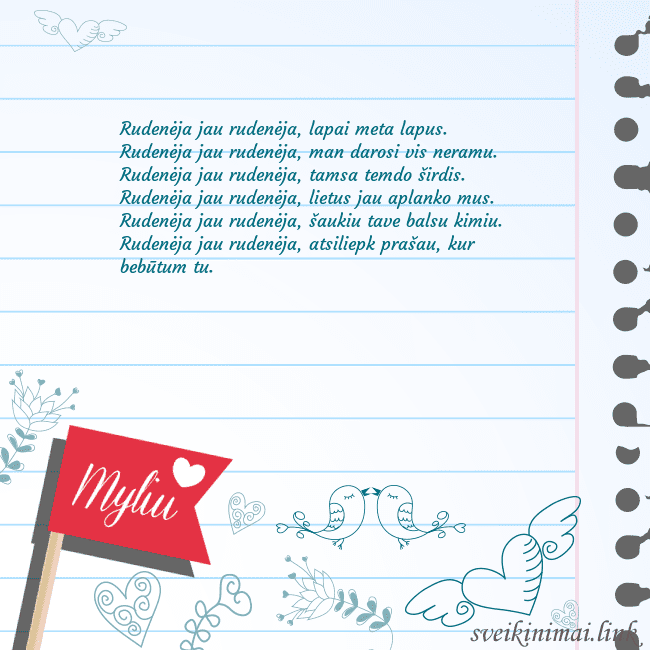 Rudenėja jau rudenėja, lapai meta lapus.
Rudenėja jau rudenėja, man darosi vis neramu.
Rudenėja jau rudenėja, tamsa temdo širdis.
Rudenėja jau rudenėja, lietus jau aplanko mus.
Rudenėja jau rudenėja, šaukiu tave balsu kimiu.
Rudenėja jau rudenėja, atsiliepk prašau, kur
bebūtum tu.
Myliu
sveikinimai.link